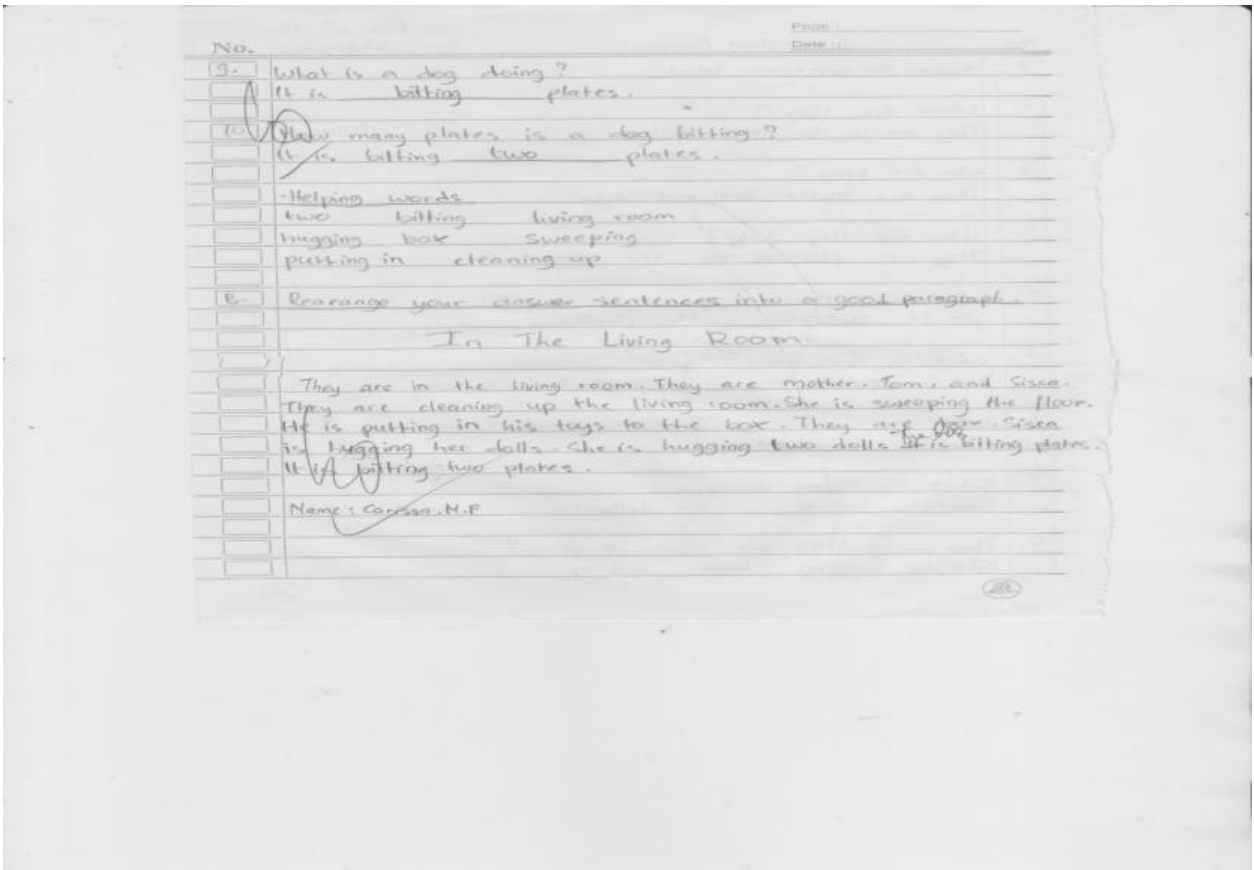 Page :
No. Date :
9. What is a dog doing ?
It is bitting plates.
10 How many plates is a dog bitting ?
It is bitting two plates.
-Helping words
two bitting living room
hugging box sweeping
putting in cleaning up
B. Rearange your answer sentences into a good paragraph.
In The Living Room
They are in the living room. They are mother, Tom, and Sisca.
They are cleaning up the living room. She is sweeping the floor.
He is putting in his toys to the box. They are Sisca
The dog
is hugging her dolls. She is hugging two dolls It is bitting plates.
It is bitting two plates.
Name : Carissa.M.F